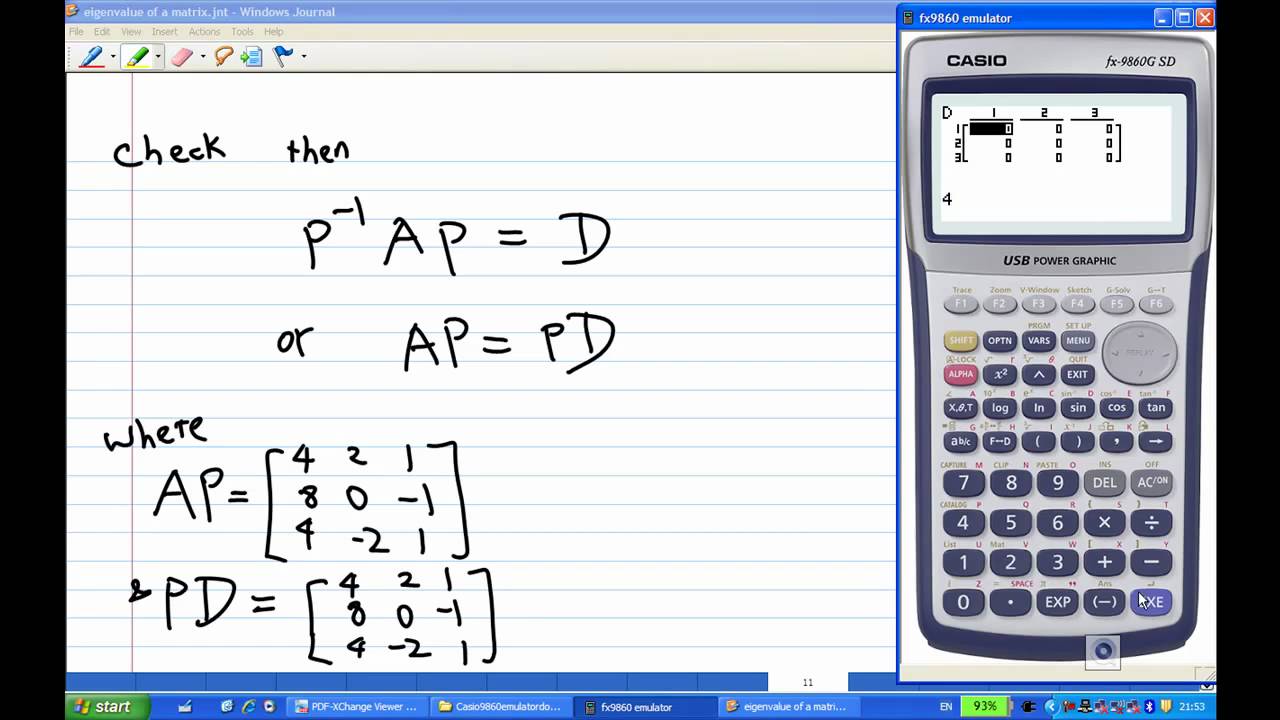 eigenvalue of a matrix.jnt - Windows Journal
File Edit View Insert Actions Tools Help
check then
P⁻¹ A P = D
or AP = PD
where
AP = [ 4 2 1
8 0 -1
4 -2 1 ]
& PD = [ 4 2 1
8 0 -1
4 -2 1 ]
11
fx9860 emulator
CASIO fx-9860G SD
D 1 2 3
1 [ 0 0 0 ]
2 [ 0 0 0 ]
3 [ 0 0 0 ]
4
USB POWER GRAPHIC
Trace Zoom V-Window Sketch G-Solv G↔T
F1 F2 F3 F4 F5 F6
PRGM SET UP
SHIFT OPTN VARS MENU
REPLAY
A-LOCK √ r ˣ√ θ QUIT
ALPHA x² ^ EXIT
∠ A 10ˣ B eˣ C sin⁻¹ D cos⁻¹ E tan⁻¹ F
X,θ,T log ln sin cos tan
G H I J K L
ab/c F↔D ( ) , →
CAPTURE M CLIP N PASTE O INS OFF
7 8 9 DEL AC/ON
CATALOG P Q R { S } T
4 5 6 × ÷
List U Mat V W [ X ] Y
1 2 3 + −
i Z = SPACE π " Ans
0 · EXP (−) EXE
start
PDF-XChange Viewer ...
Casio9860emulatordo...
fx9860 emulator
eigenvalue of a matri...
EN 93% 21:53